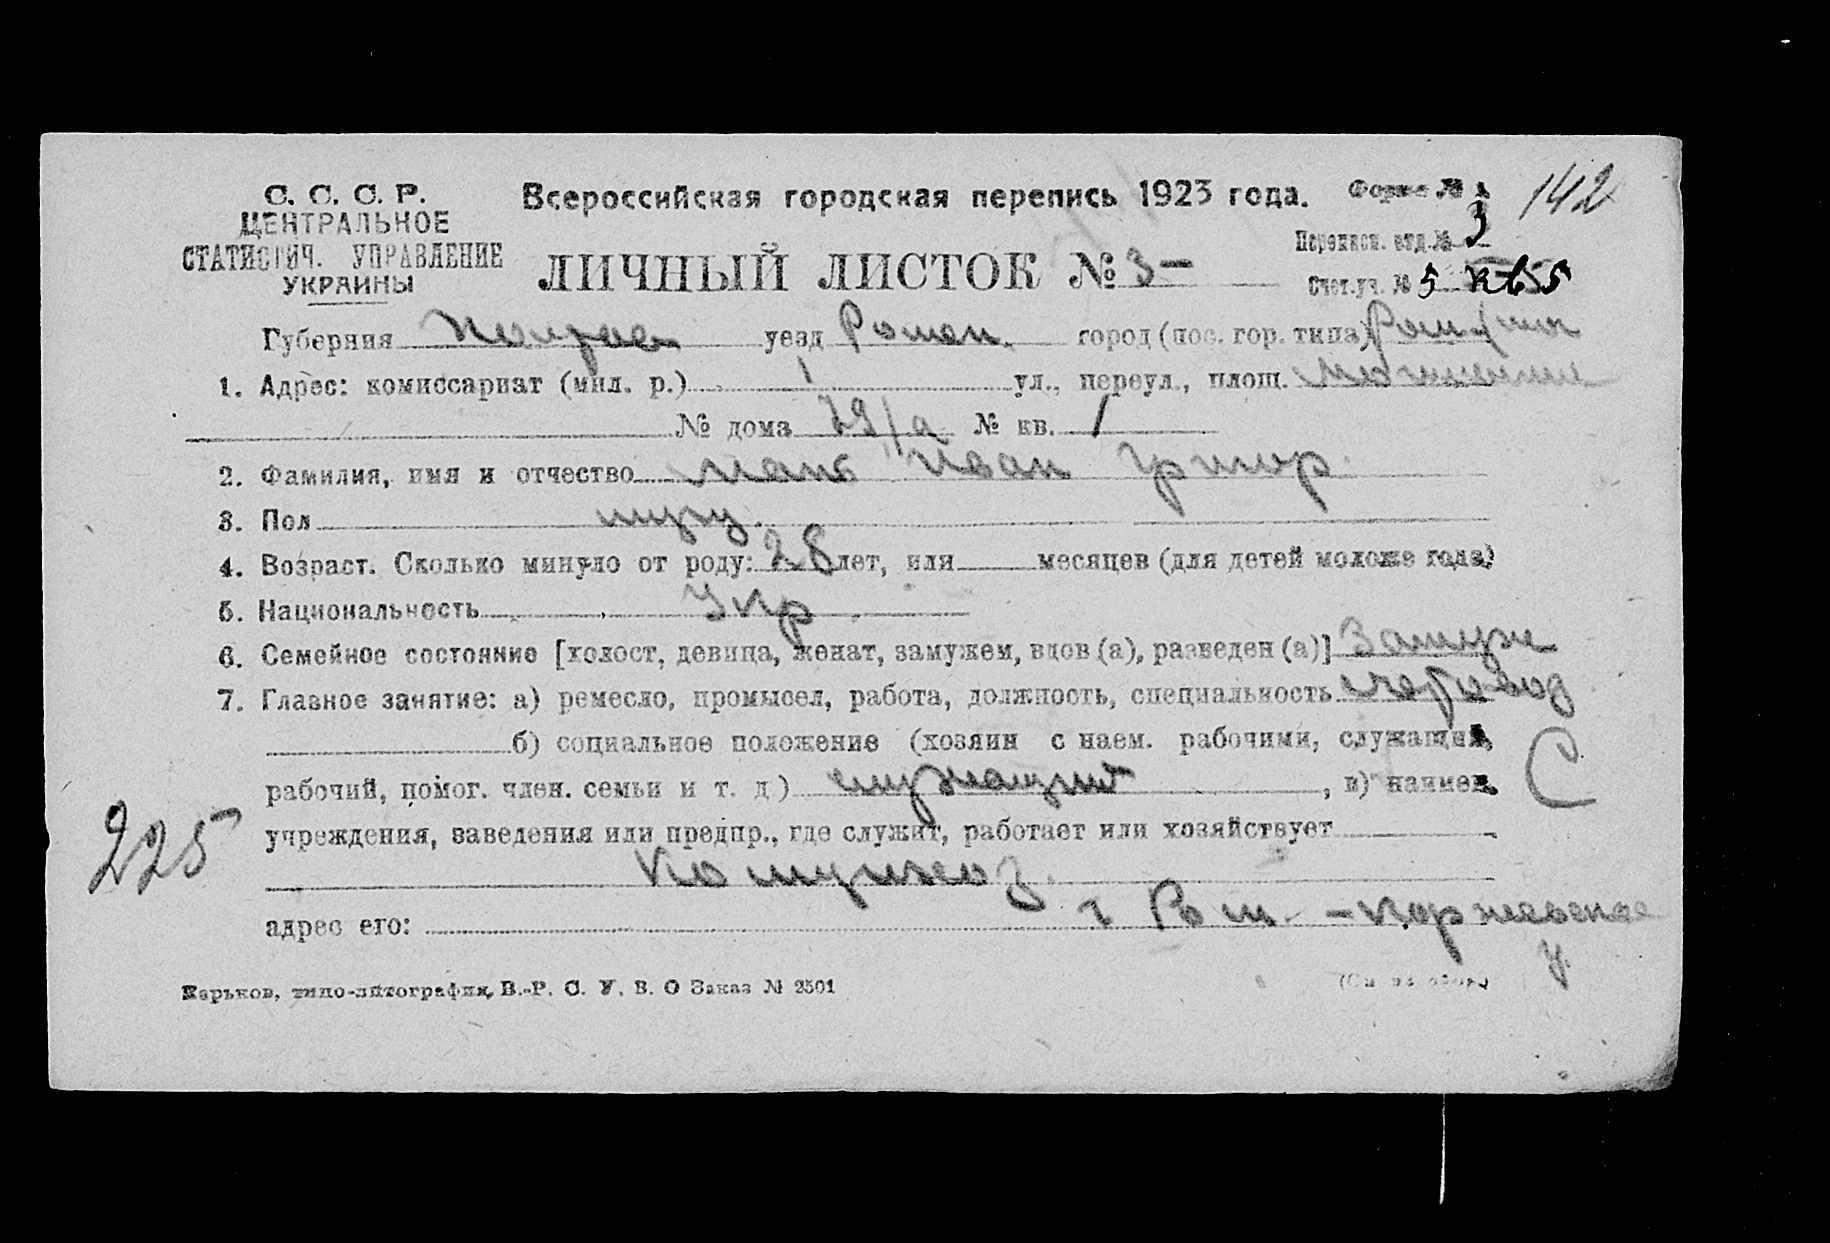 С. С. С. Р.
ЦЕНТРАЛЬНОЕ
СТАТИСТИЧ. УПРАВЛЕНИЕ
УКРАИНЫ
Всероссийская городская перепись 1923 года.
Форма № 142
ЛИЧНЫЙ ЛИСТОК № 3-
Переписн. отд. № 3
Счет. уч. № 5
Губерния уезд Ромен. город (пос. гор. типа)
1. Адрес: комиссариат (мил. р.) 1 ул., переул., площ.
№ дома 29/а № кв. 1
2. Фамилия, имя и отчество Иван Григор.
3. Пол муж
4. Возраст. Сколько минуло от роду: 28 лет, или месяцев (для детей моложе года)
5. Национальность Укр
6. Семейное состояние [холост, девица, женат, замужем, вдов (а), разведен (а)] Замуж
7. Главное занятие: а) ремесло, промысел, работа, должность, специальность счетовод
б) социальное положение (хозяин с наем. рабочими, служащий, С
рабочий, помог. член. семьи и т. д) служащий, в) наимен.
225 учреждения, заведения или предпр., где служит, работает или хозяйствует
Комунхоз.
адрес его: г Ром. - Коржевская
у.
Харьков, типо-литография, В.-Р. С. У. В. О Заказ № 2501